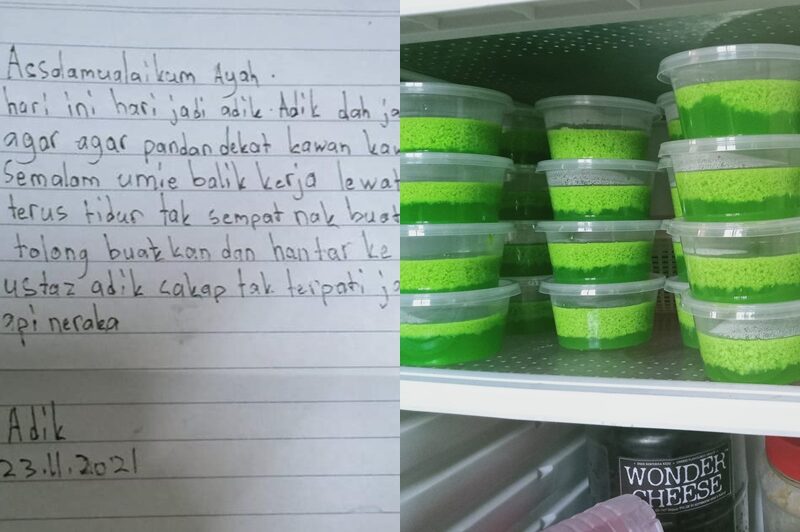 Assalamualaikum Ayah.
hari ini hari jadi adik. Adik dah ja
agar agar pandan dekat kawan kaw
Semalam umie balik kerja lewat
terus tidur tak sempat nak buat
tolong buatkan dan hantar ke
ustaz adik cakap tak terpati ja
api neraka
Adik
23.11.2021
WONDER
CHEESE